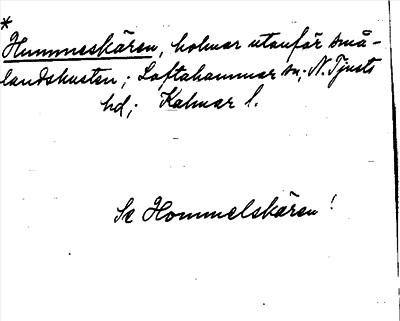 *
Hummeskären, holmar utanför små-
landskusten; Loftahammar sn; N. Tjusts
hd; Kalmar l.
Se Hommelskären!